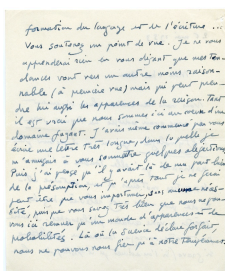 formation du langage et de l'écriture ...
Vous soutenez un point de vue. Je ne vous
apprendrai rien en vous disant que mes ten-
dances vont vers un autre moins raison-
nable (à première vue) mais qui peut pren-
dre lui aussi les apparences de la raison. Tant
il est vrai que nous sommes ici au niveau d'un
domaine fuyant. J'avais même commencé par vous
écrire une lettre très longue, dans laquelle je
m'amusais à vous soumettre quelques objections.
Puis j'ai pensé qu'il y avait là de ma part bien
de la présomption, et qu'après tout je ne ferai
peut-être que vous importuner, sans
que vous savez très bien que nous ne pou-
vons ici remuer qu'un monde d'apparences et de
probabilités. Là où la science déclare forfait,
nous ne pouvons nous fier qu'à notre tempérament.